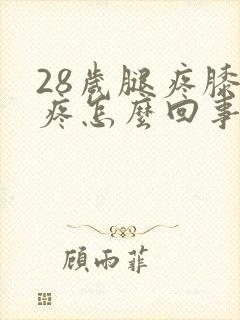 28歲腿疼膝
疼怎麼回事
顧雨菲